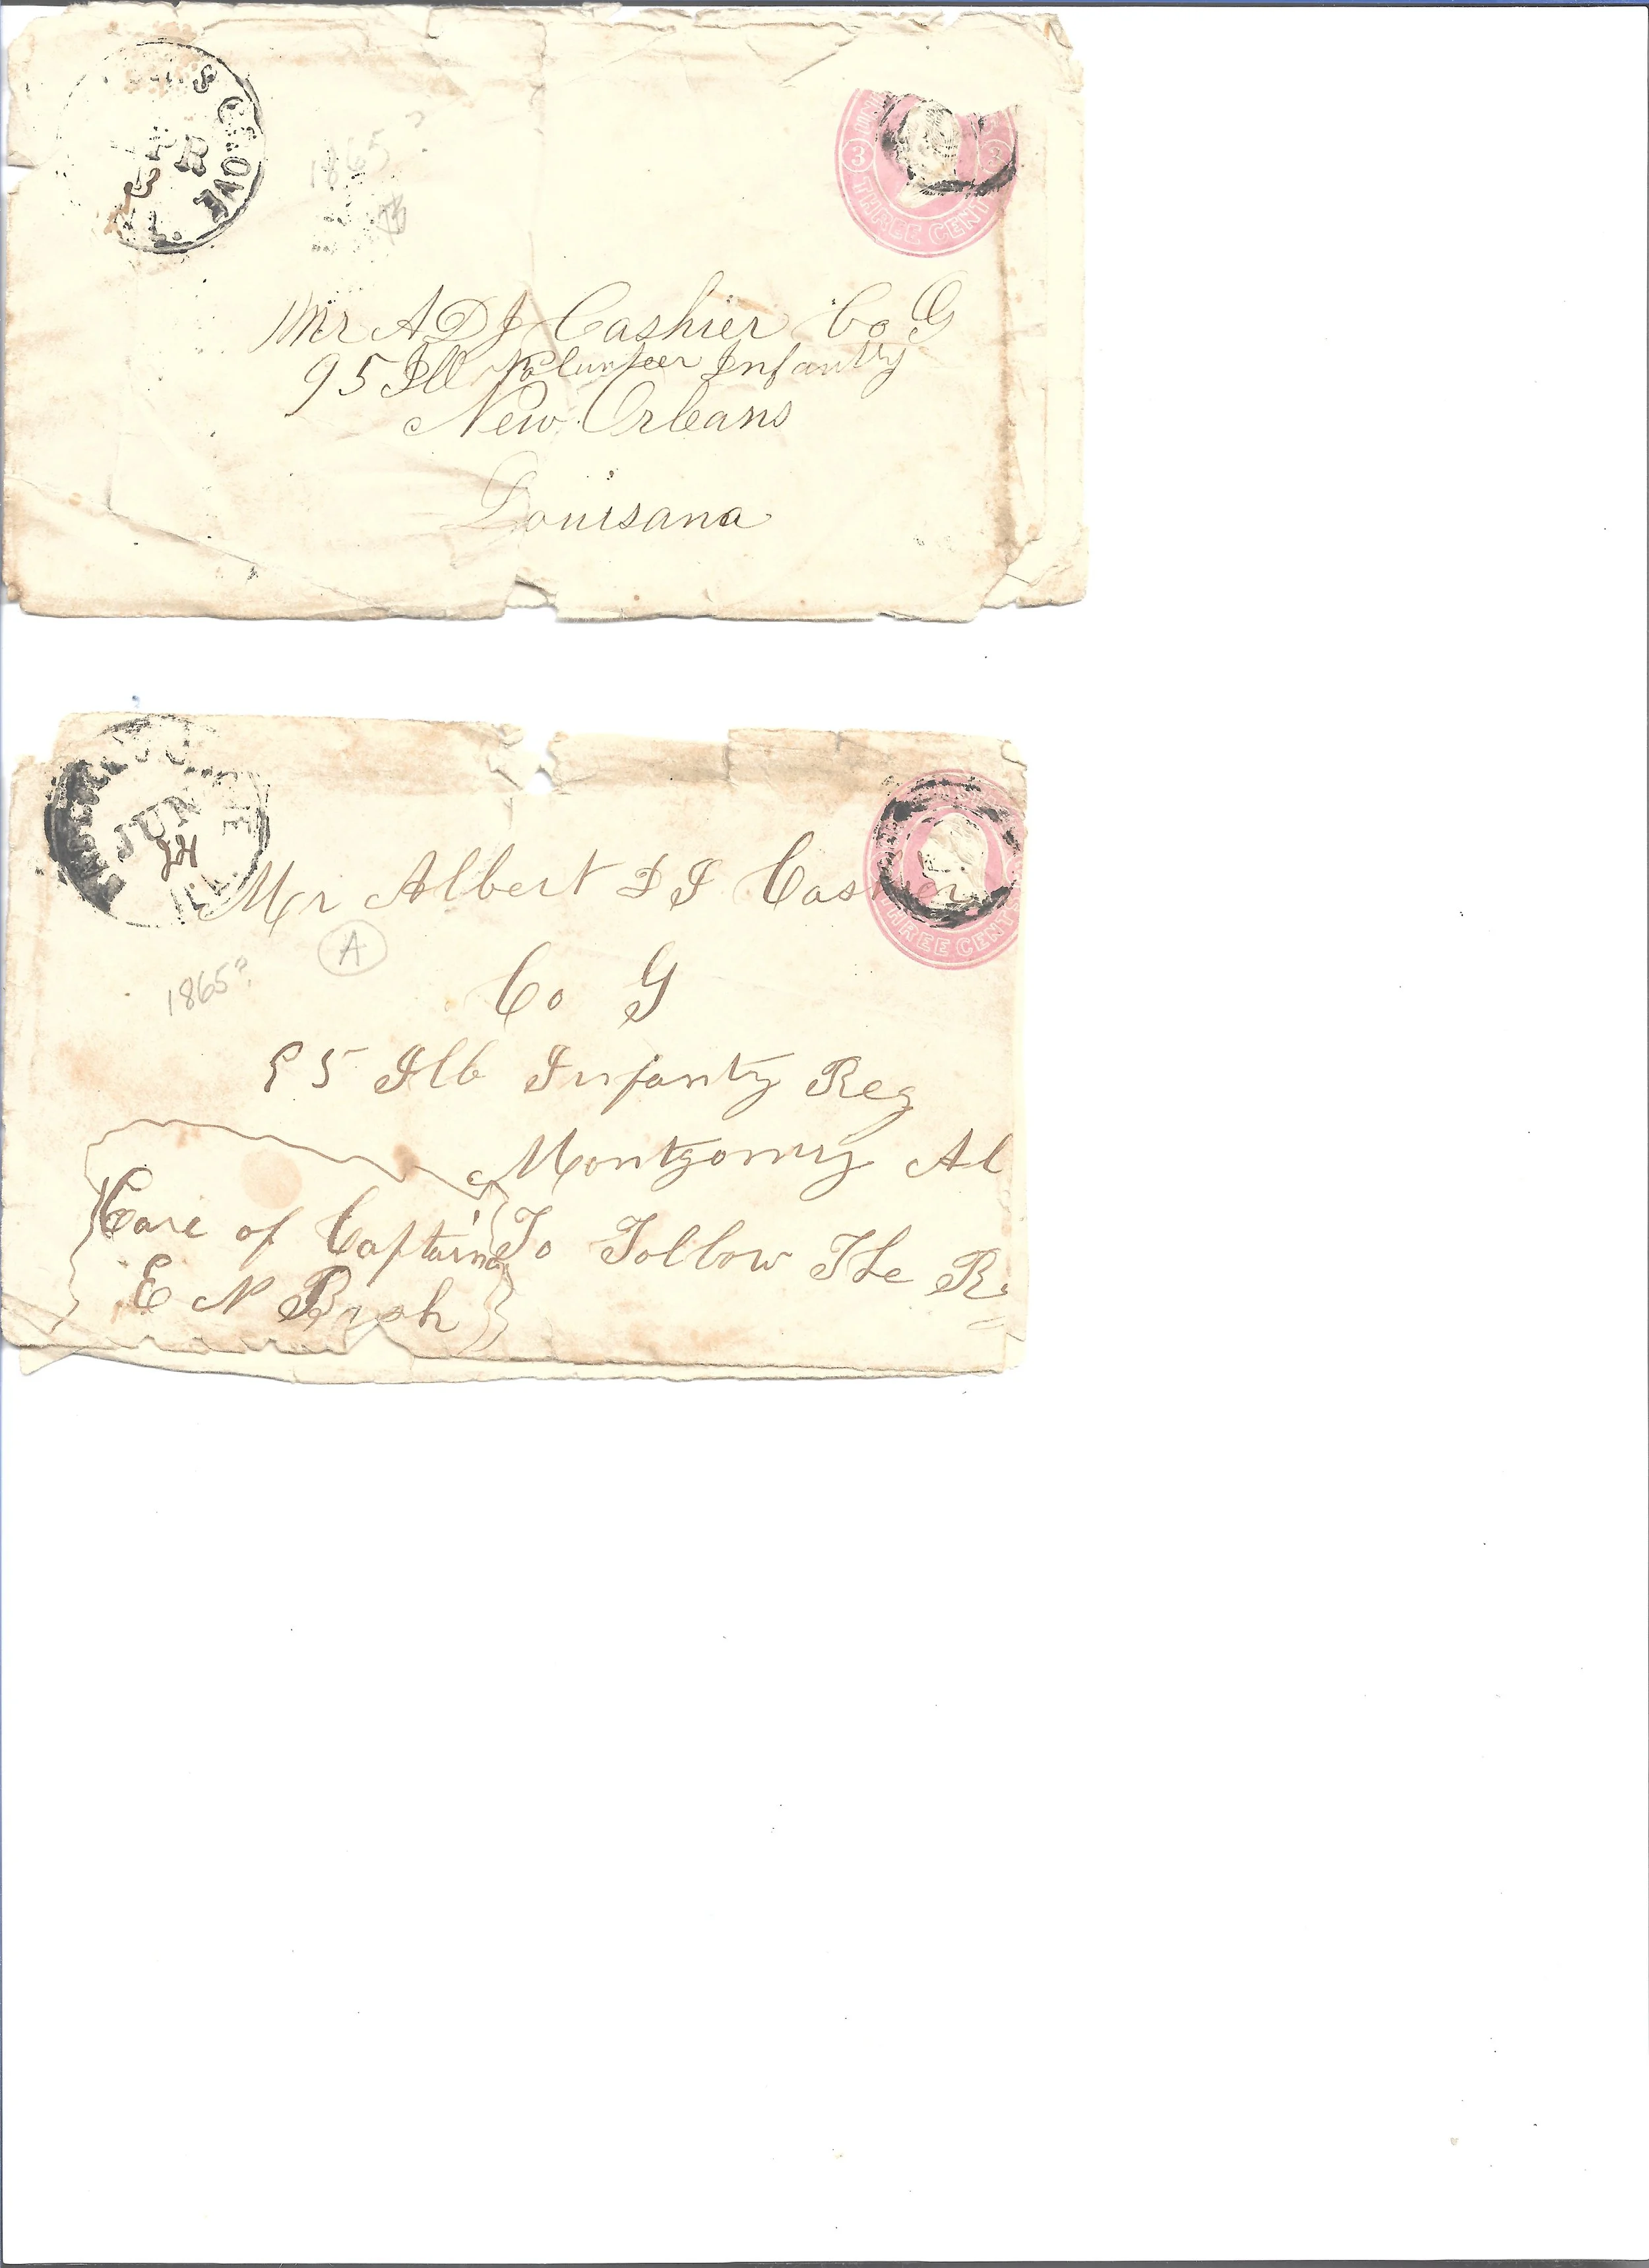 S GROVE
1865?
UNI
3 3
THREE CENT
Mr A D J Cashier Co G
95 Ill Volunteer Infantry
New Orleans
Louisana
JUN
22
ILL
THREE CENT
Mr Albert D J Cashier
A
1865?
Co G
95 Ills Infanty Reg
Montgomry Al
To Follow The R
Care of Captain
E N Bush